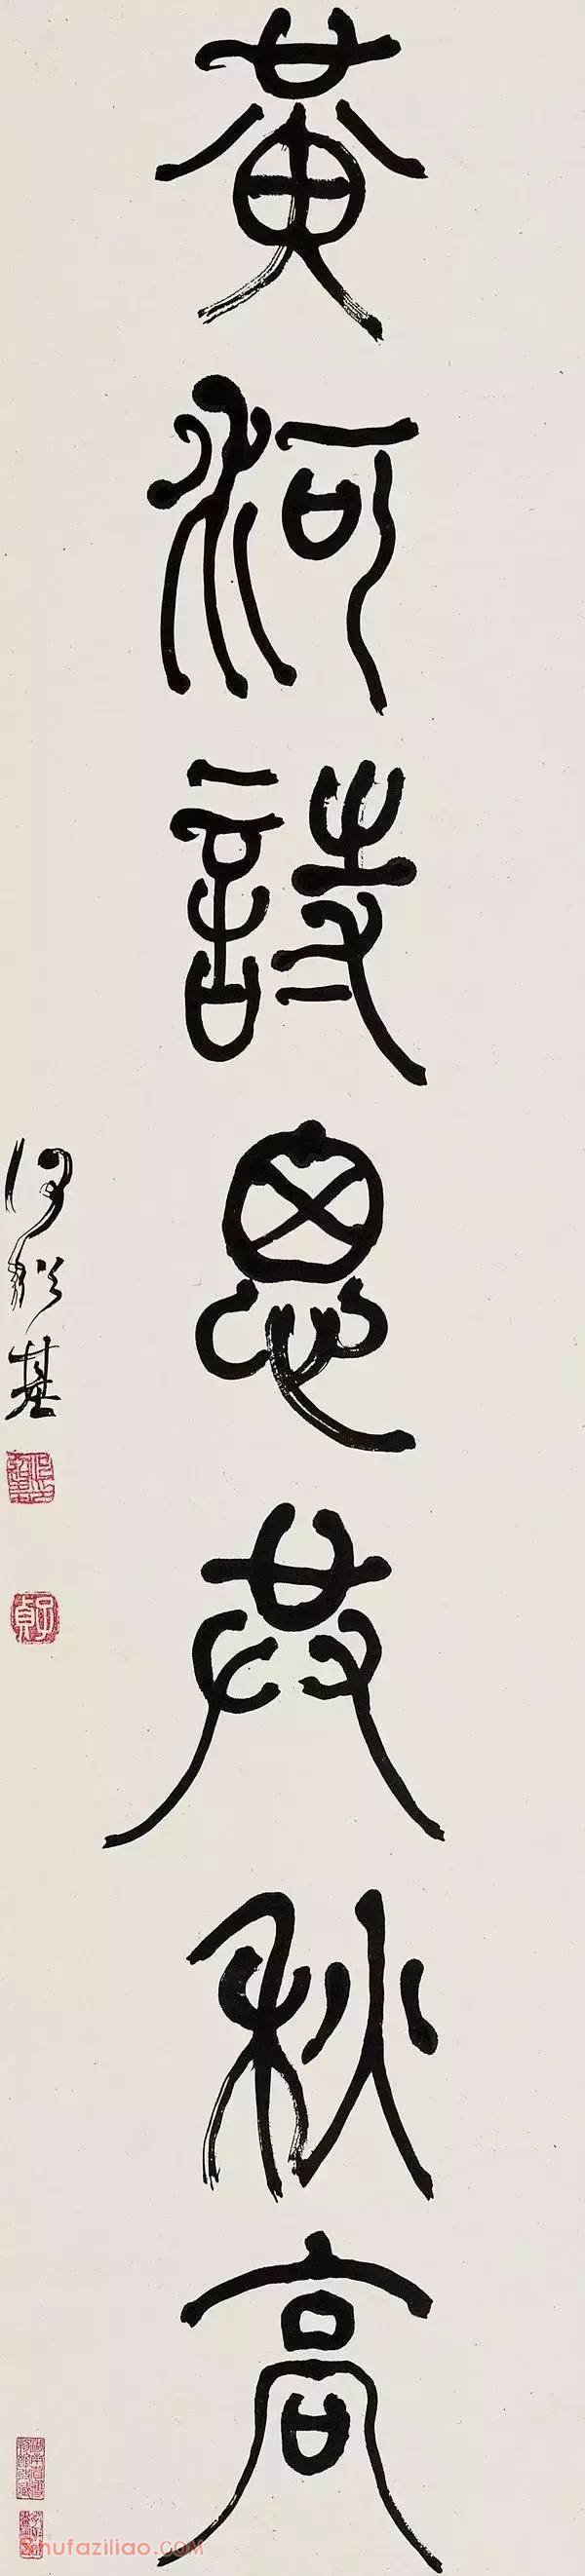 黃河詩思共秋高
何紹基
子貞
shufaziliao.com